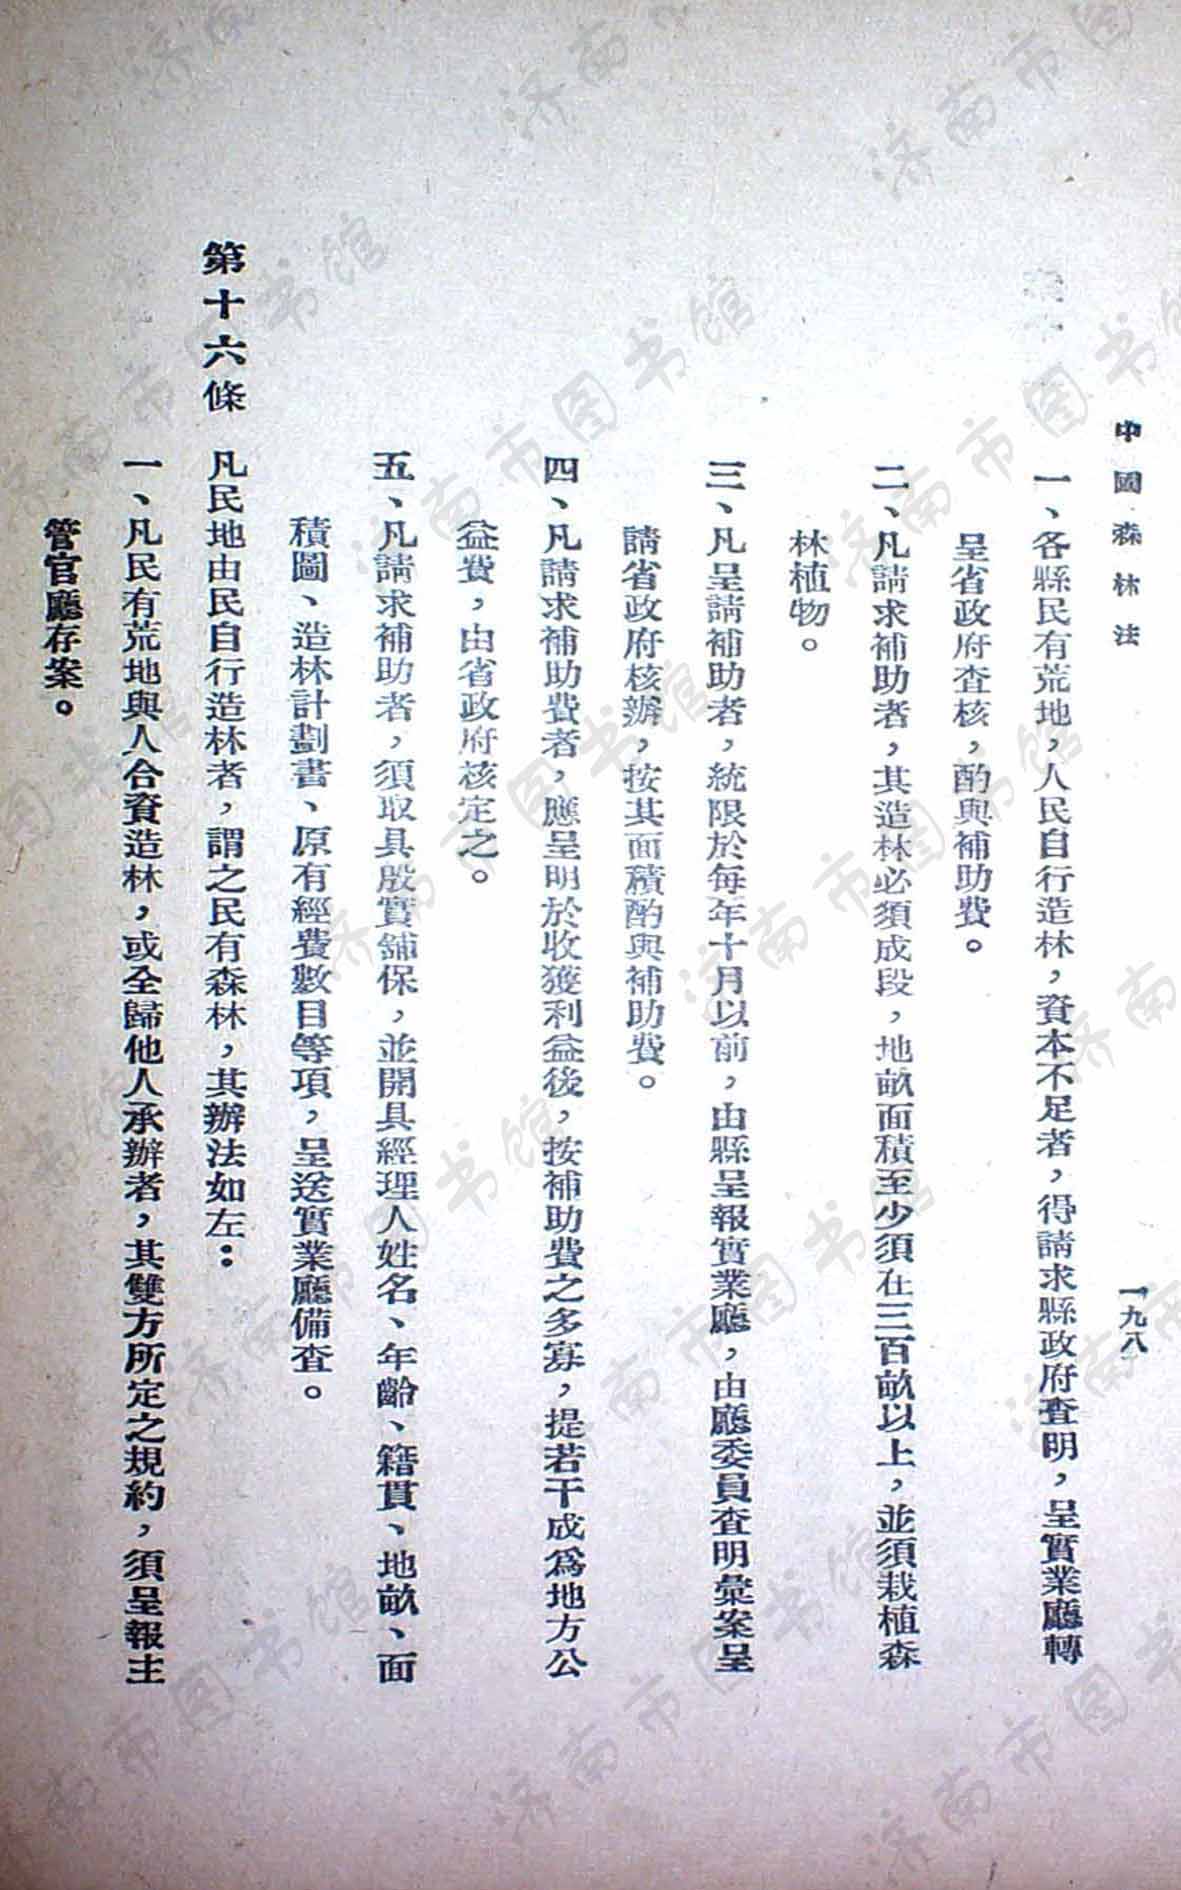 中國森林法
一九八
一、各縣民有荒地，人民自行造林，資本不足者，得請求縣政府查明，呈實業廳轉
呈省政府查核，酌與補助費。
二、凡請求補助者，其造林必須成段，地畝面積至少須在三百畝以上，並須栽植森
林植物。
三、凡呈請補助者，統限於每年十月以前，由縣呈報實業廳，由廳委員查明彙案呈
請省政府核辦，按其面積酌與補助費。
四、凡請求補助費者，應呈明於收獲利益後，按補助費之多寡，提若干成為地方公
益費，由省政府核定之。
五、凡請求補助者，須取具殷實鋪保，並開具經理人姓名、年齡、籍貫、地畝、面
積圖、造林計劃書、原有經費數目等項，呈送實業廳備查。
第十六條　凡民地由民自行造林者，謂之民有森林，其辦法如左：
一、凡民有荒地與人合資造林，或全歸他人承辦者，其雙方所定之規約，須呈報主
管官廳存案。
济南市图书馆